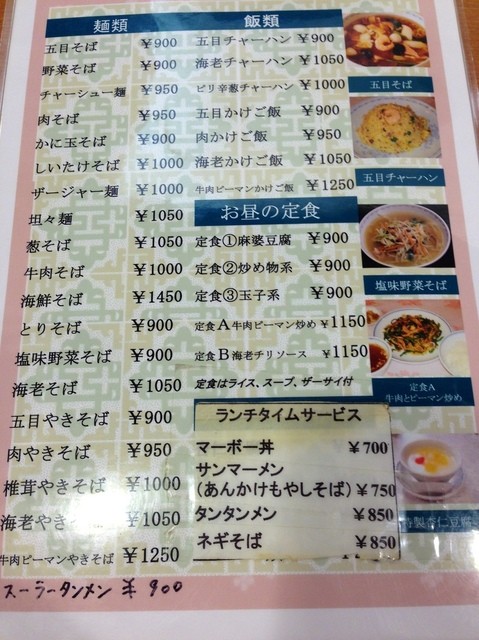 麺類
五目そば ¥900
野菜そば ¥900
チャーシュー麺 ¥950
肉そば ¥950
かに玉そば ¥950
しいたけそば ¥1000
ザージャー麺 ¥1000
坦々麺 ¥1050
葱そば ¥1050
牛肉そば ¥1000
海鮮そば ¥1450
とりそば ¥900
塩味野菜そば ¥900
海老そば ¥1050
五目やきそば ¥900
肉やきそば ¥950
椎茸やきそば ¥1000
海老やきそ ¥1050
牛肉ピーマンやきそば ¥1250
スーラータンメン ¥900
飯類
五目チャーハン ¥900
海老チャーハン ¥1050
ピリ辛葱チャーハン ¥1000
五目かけご飯 ¥900
肉かけご飯 ¥950
海老かけご飯 ¥1050
牛肉ピーマンかけご飯 ¥1250
お昼の定食
定食①麻婆豆腐 ¥900
定食②炒め物系 ¥900
定食③玉子系 ¥900
定食A牛肉ピーマン炒め ¥1150
定食B海老チリソース ¥1150
定食はライス、スープ、ザーサイ付
ランチタイムサービス
マーボー丼 ¥700
サンマーメン
(あんかけもやしそば) ¥750
タンタンメン ¥850
ネギそば ¥850
五目そば
五目チャーハン
塩味野菜そば
定食A
牛肉とピーマン炒め
特製杏仁豆腐